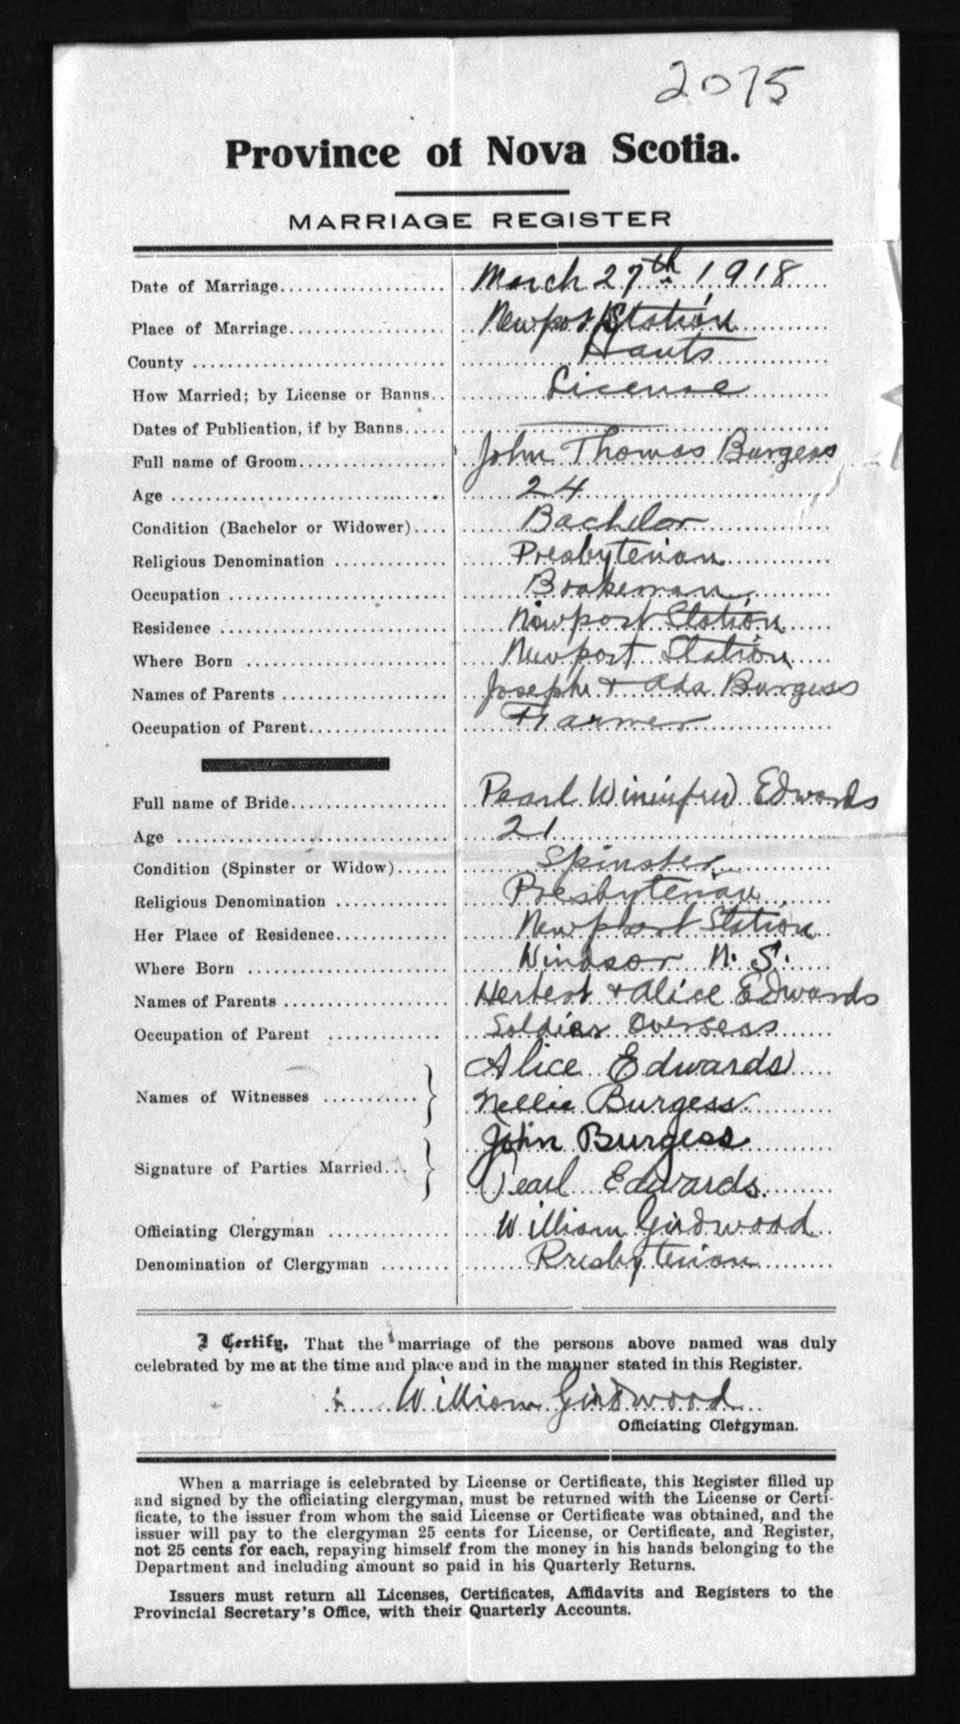 2075
Province of Nova Scotia.
MARRIAGE REGISTER
Date of Marriage.................... March 27th, 1918
Place of Marriage................... Newport Station
County ............................. Hants
How Married; by License or Banns.. License
Dates of Publication, if by Banns..... ———
Full name of Groom.................. John Thomas Burgess
Age ................................ 24
Condition (Bachelor or Widower).... Bachelor
Religious Denomination ............. Presbyterian
Occupation ......................... Brakeman
Residence .......................... Newport Station
Where Born ......................... Newport Station
Names of Parents ................... Joseph + Ada Burgess
Occupation of Parent................ Farmer
Full name of Bride.................. Pearl Wininfred Edwards
Age ................................ 21
Condition (Spinster or Widow)...... Spinster
Religious Denomination ............. Presbyterian
Her Place of Residence.............. Newport Station
Where Born ......................... Windsor N. S.
Names of Parents ................... Herbert + Alice Edwards
Occupation of Parent ............. Soldier Overseas
Alice Edwards
Names of Witnesses ............ } Nellie Burgess
John Burgess
Signature of Parties Married... } Pearl Edwards
Officiating Clergyman .............. William Girdwood
Denomination of Clergyman ........ Presbyterian
I Certify, That the marriage of the persons above named was duly
celebrated by me at the time and place and in the manner stated in this Register.
William Girdwood
Officiating Clergyman.
When a marriage is celebrated by License or Certificate, this Register filled up
and signed by the officiating clergyman, must be returned with the License or Certi-
ficate, to the issuer from whom the said License or Certificate was obtained, and the
issuer will pay to the clergyman 25 cents for License, or Certificate, and Register,
not 25 cents for each, repaying himself from the money in his hands belonging to the
Department and including amount so paid in his Quarterly Returns.
Issuers must return all Licenses, Certificates, Affidavits and Registers to the
Provincial Secretary's Office, with their Quarterly Accounts.